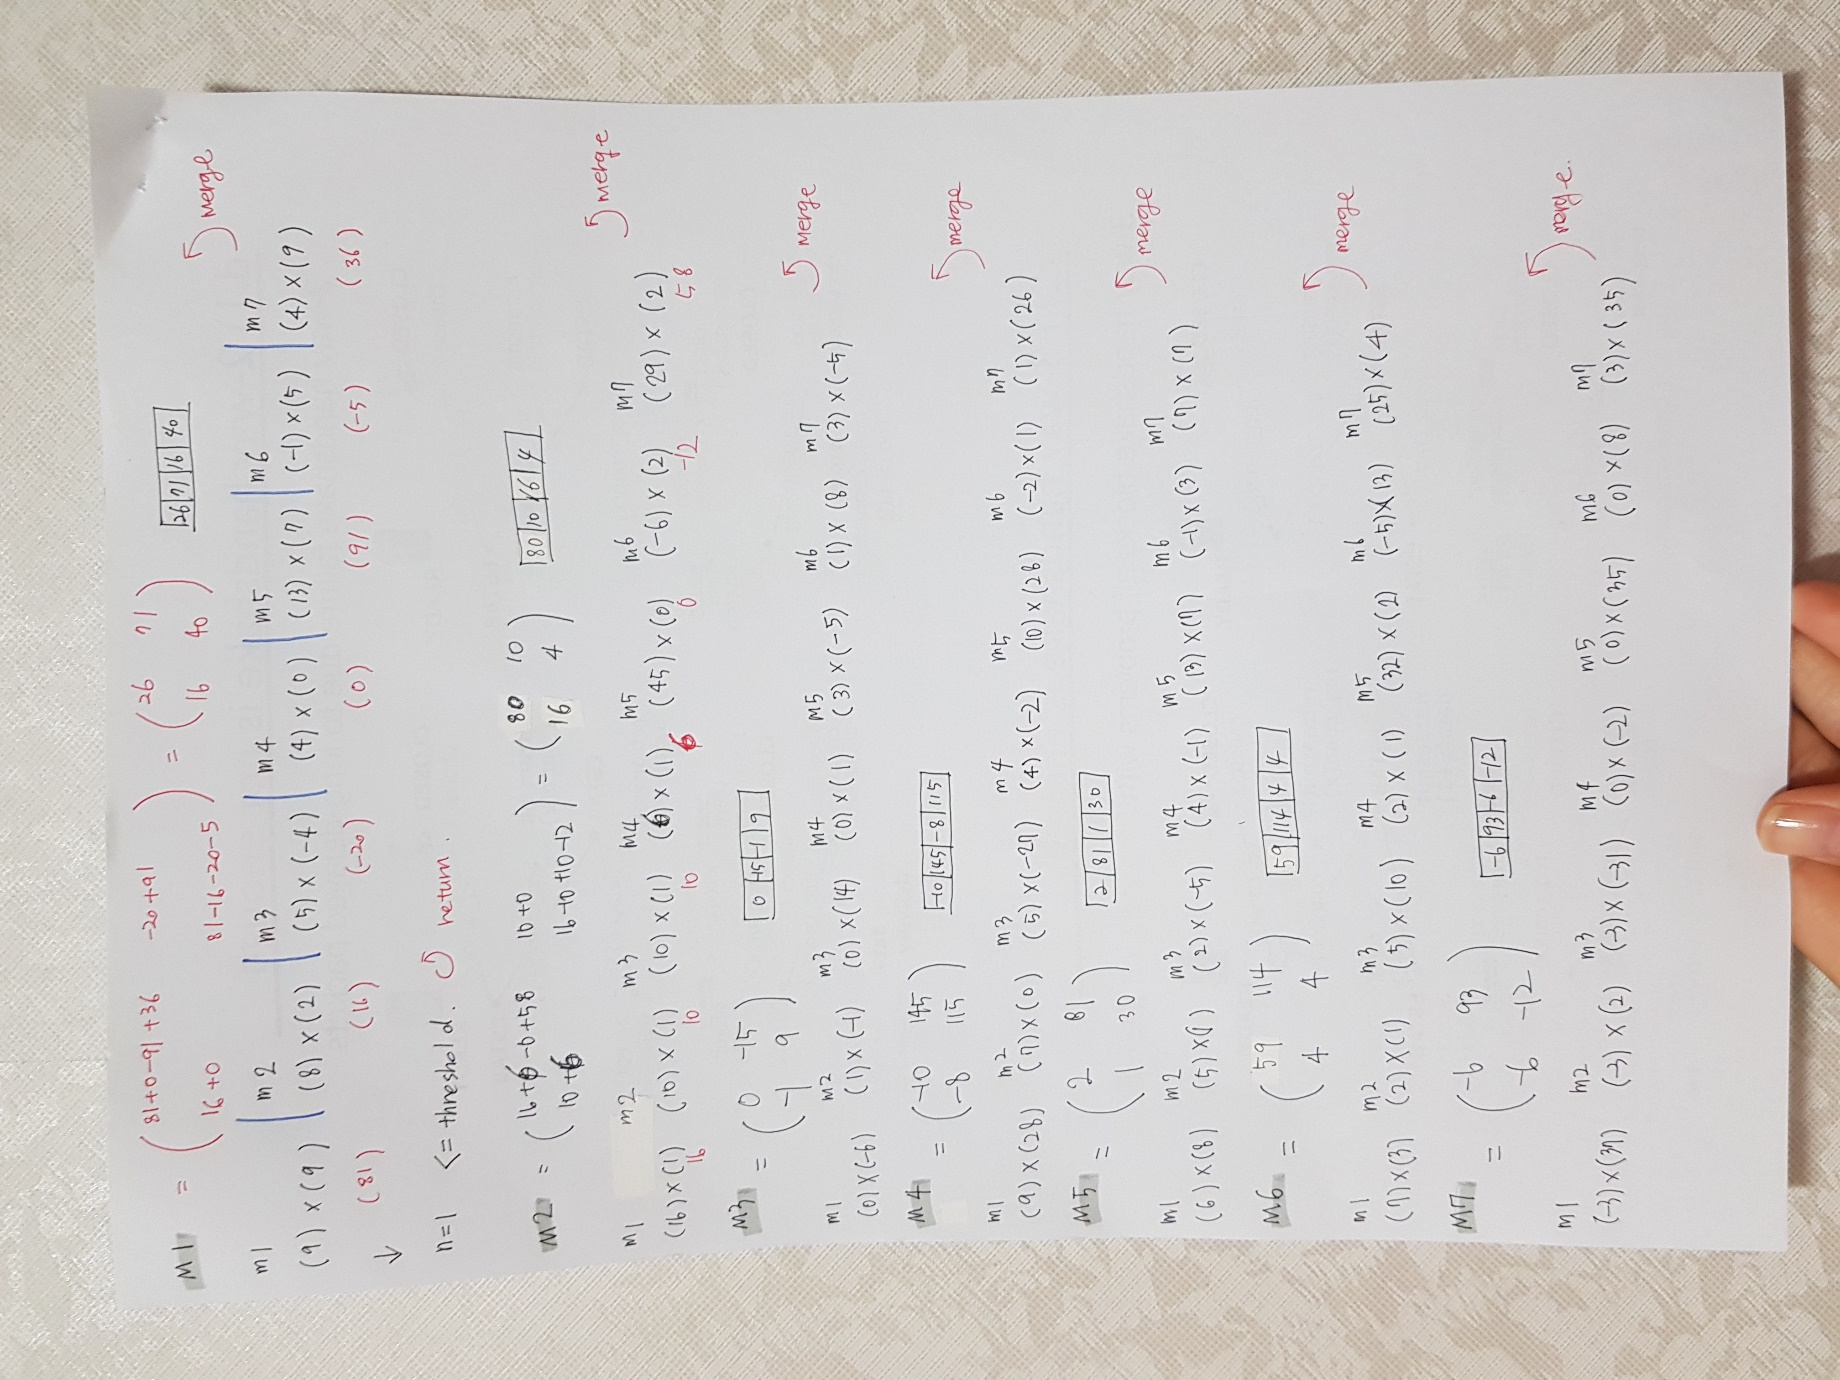 M1 = ( 81+0-91+36 -20+91
16+0 81-16-20-5 ) = ( 26 71
16 40 ) 26 71 16 40
merge
m1 m2 m3 m4 m5 m6 m7
(9)×(9) (8)×(2) (5)×(-4) (4)×(0) (13)×(7) (-1)×(5) (4)×(9)
(81) (16) (-20) (0) (91) (-5) (36)
↓
n=1 <= threshold. return.
M2 = ( 16+6-0+58 10+0
10+6 16-10+10-12 ) = ( 80 10
16 4 ) 80 10 16 4
merge
m1 m2 m3 m4 m5 m6 m7
(16)×(1) (10)×(1) (10)×(1) (6)×(1) (45)×(0) (-6)×(2) (29)×(2)
16 10 10 6 0 -12 58
M3 = ( 0 -15
-1 9 ) 0 -15 -1 9
merge
m1 m2 m3 m4 m5 m6 m7
(0)×(-6) (1)×(-1) (0)×(14) (0)×(1) (3)×(-5) (1)×(8) (3)×(-5)
M4 = ( -10 145
-8 115 ) -10 145 -8 115
merge
m1 m2 m3 m4 m5 m6 m7
(9)×(28) (7)×(0) (5)×(-27) (4)×(-2) (10)×(28) (-2)×(1) (1)×(26)
M5 = ( 2 81
1 30 ) 2 81 1 30
merge
m1 m2 m3 m4 m5 m6 m7
(6)×(8) (5)×(1) (2)×(-5) (4)×(-1) (13)×(7) (-1)×(3) (7)×(7)
M6 = ( 59 114
4 4 ) 59 114 4 4
merge
m1 m2 m3 m4 m5 m6 m7
(7)×(3) (2)×(1) (5)×(10) (2)×(1) (32)×(2) (-5)×(13) (25)×(4)
M7 = ( -6 93
-6 -12 ) -6 93 -6 -12
merge.
m1 m2 m3 m4 m5 m6 m7
(-3)×(37) (-3)×(2) (-3)×(-31) (0)×(-2) (0)×(35) (0)×(8) (3)×(35)